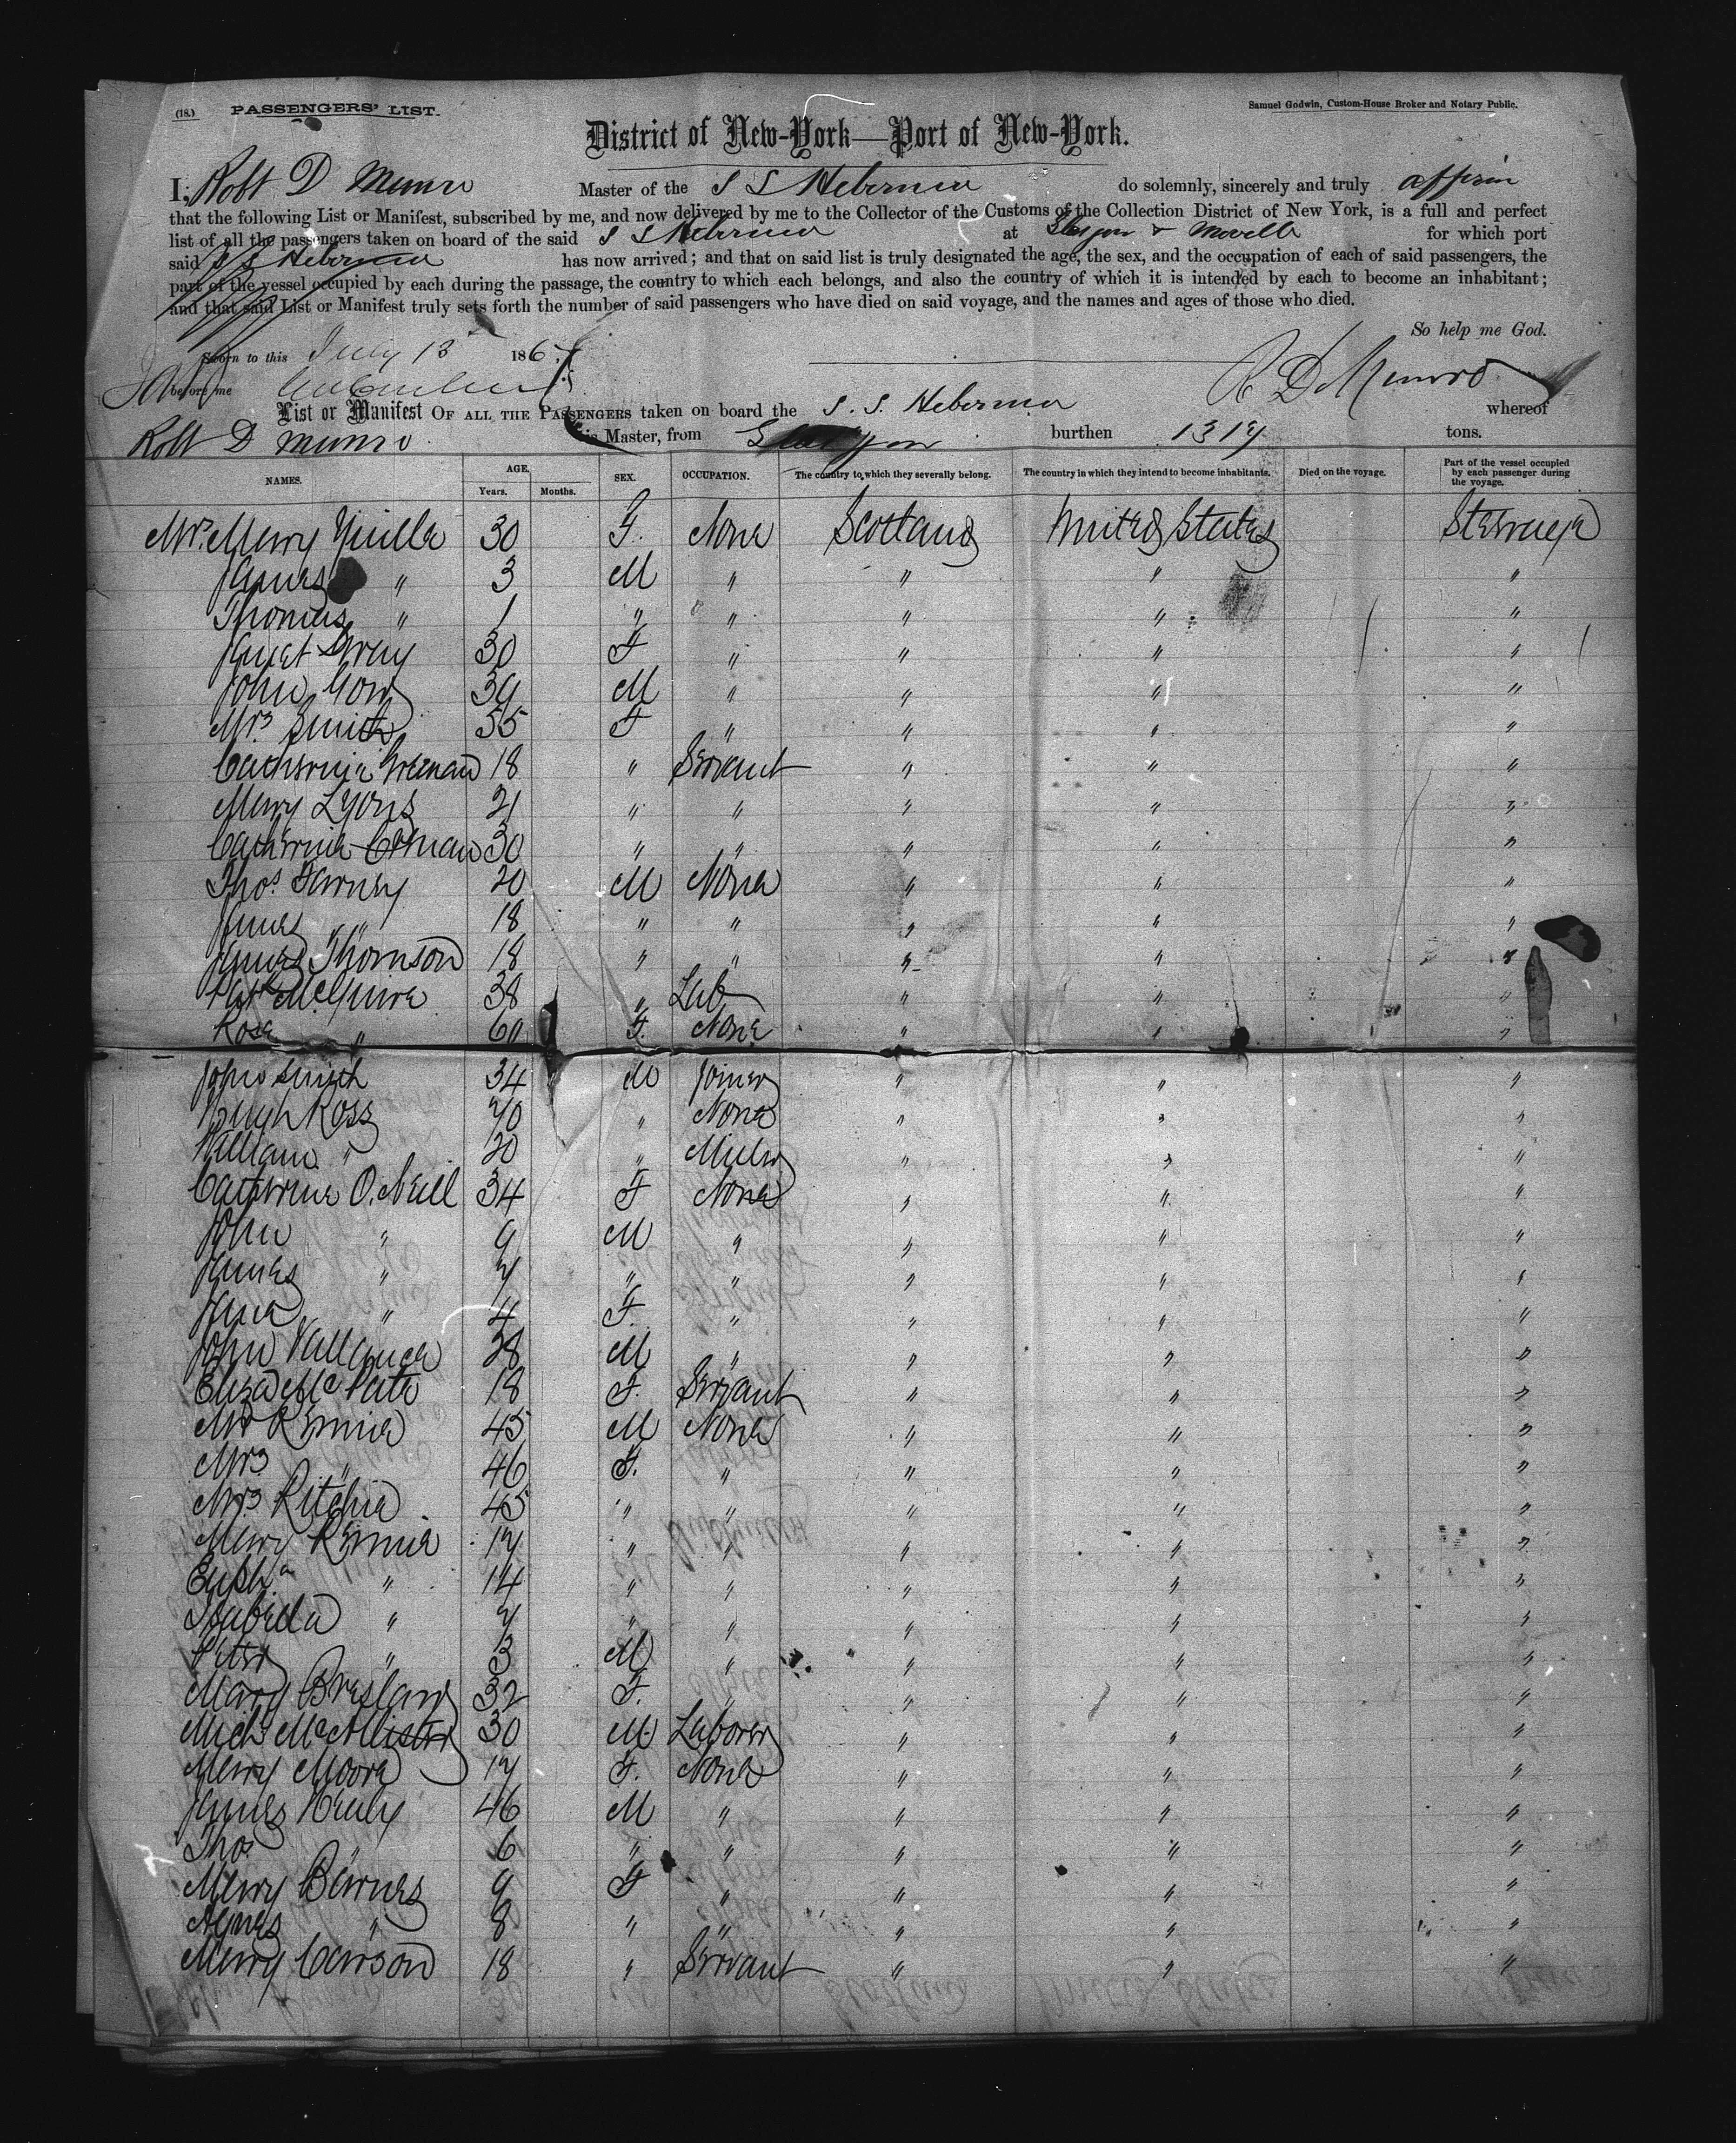 (18.) PASSENGERS' LIST.
Samuel Godwin, Custom-House Broker and Notary Public.
District of New-York—Port of New-York.
I, Robt D Munro Master of the S S Hebernia do solemnly, sincerely and truly affirm
that the following List or Manifest, subscribed by me, and now delivered by me to the Collector of the Customs of the Collection District of New York, is a full and perfect
list of all the passengers taken on board of the said S S Hebernia at Glasgow & Moville for which port
said S S Hebernia has now arrived; and that on said list is truly designated the age, the sex, and the occupation of each of said passengers, the
part of the vessel occupied by each during the passage, the country to which each belongs, and also the country of which it is intended by each to become an inhabitant;
and that said List or Manifest truly sets forth the number of said passengers who have died on said voyage, and the names and ages of those who died.
So help me God.
Sworn to this July 13 186
before me
R D Munro
List or Manifest OF ALL THE PASSENGERS taken on board the S. S. Hebernia whereof
Robt D Munro is Master, from Glasgow burthen 1317 tons.
NAMES. AGE. Years. Months. SEX. OCCUPATION. The country to which they severally belong. The country in which they intend to become inhabitants. Died on the voyage. Part of the vessel occupied by each passenger during the voyage.
Mrs. Mary 30 F. None Scotland United States Steerage
James " 3 M " " " "
Thomas " 1 " " " " "
Janet Gray 30 F " " " "
John Gow 39 M " " " "
Mrs Smith 55 F " " " "
Catherine 18 " Servant " " "
Mary Lyons 21 " " " " "
Catherine 30 " " " " "
Thos. 20 M None " " "
James " 18 " " " " "
James Thomson 18 " " " " "
Patk McGuire 38 " Lab " " "
Rose " 60 F. None " " "
John Smith 34 M Joiner " " "
Hugh Ross 70 " None " " "
William " 20 " " " "
Catherine O.Neill 34 F None " " "
John " 9 M " " " "
James " 7 " " " " "
Jane " 4 F. " " " "
John Vallance 28 M " " " "
Eliza McPate 18 F. Servant " " "
Mr Rennie 45 M None " " "
Mrs " 46 F. " " " "
Mrs Ritchie 45 " " " " "
Mary Rennie 17 " " " " "
Ephn " 14 " " " " "
Isabella " 7 " " " " "
Peter " 3 M " " " "
Mary Breslaw 32 F. " " " "
Mich. McAllister 30 M. Laborer " " "
Mary Moore 17 F. None " " "
James Healy 46 M " " " "
Thos. " 6 " " " " "
Mary Barnes 9 F " " " "
Agnes " 8 " " " " "
Mary Carson 18 " Servant " " "